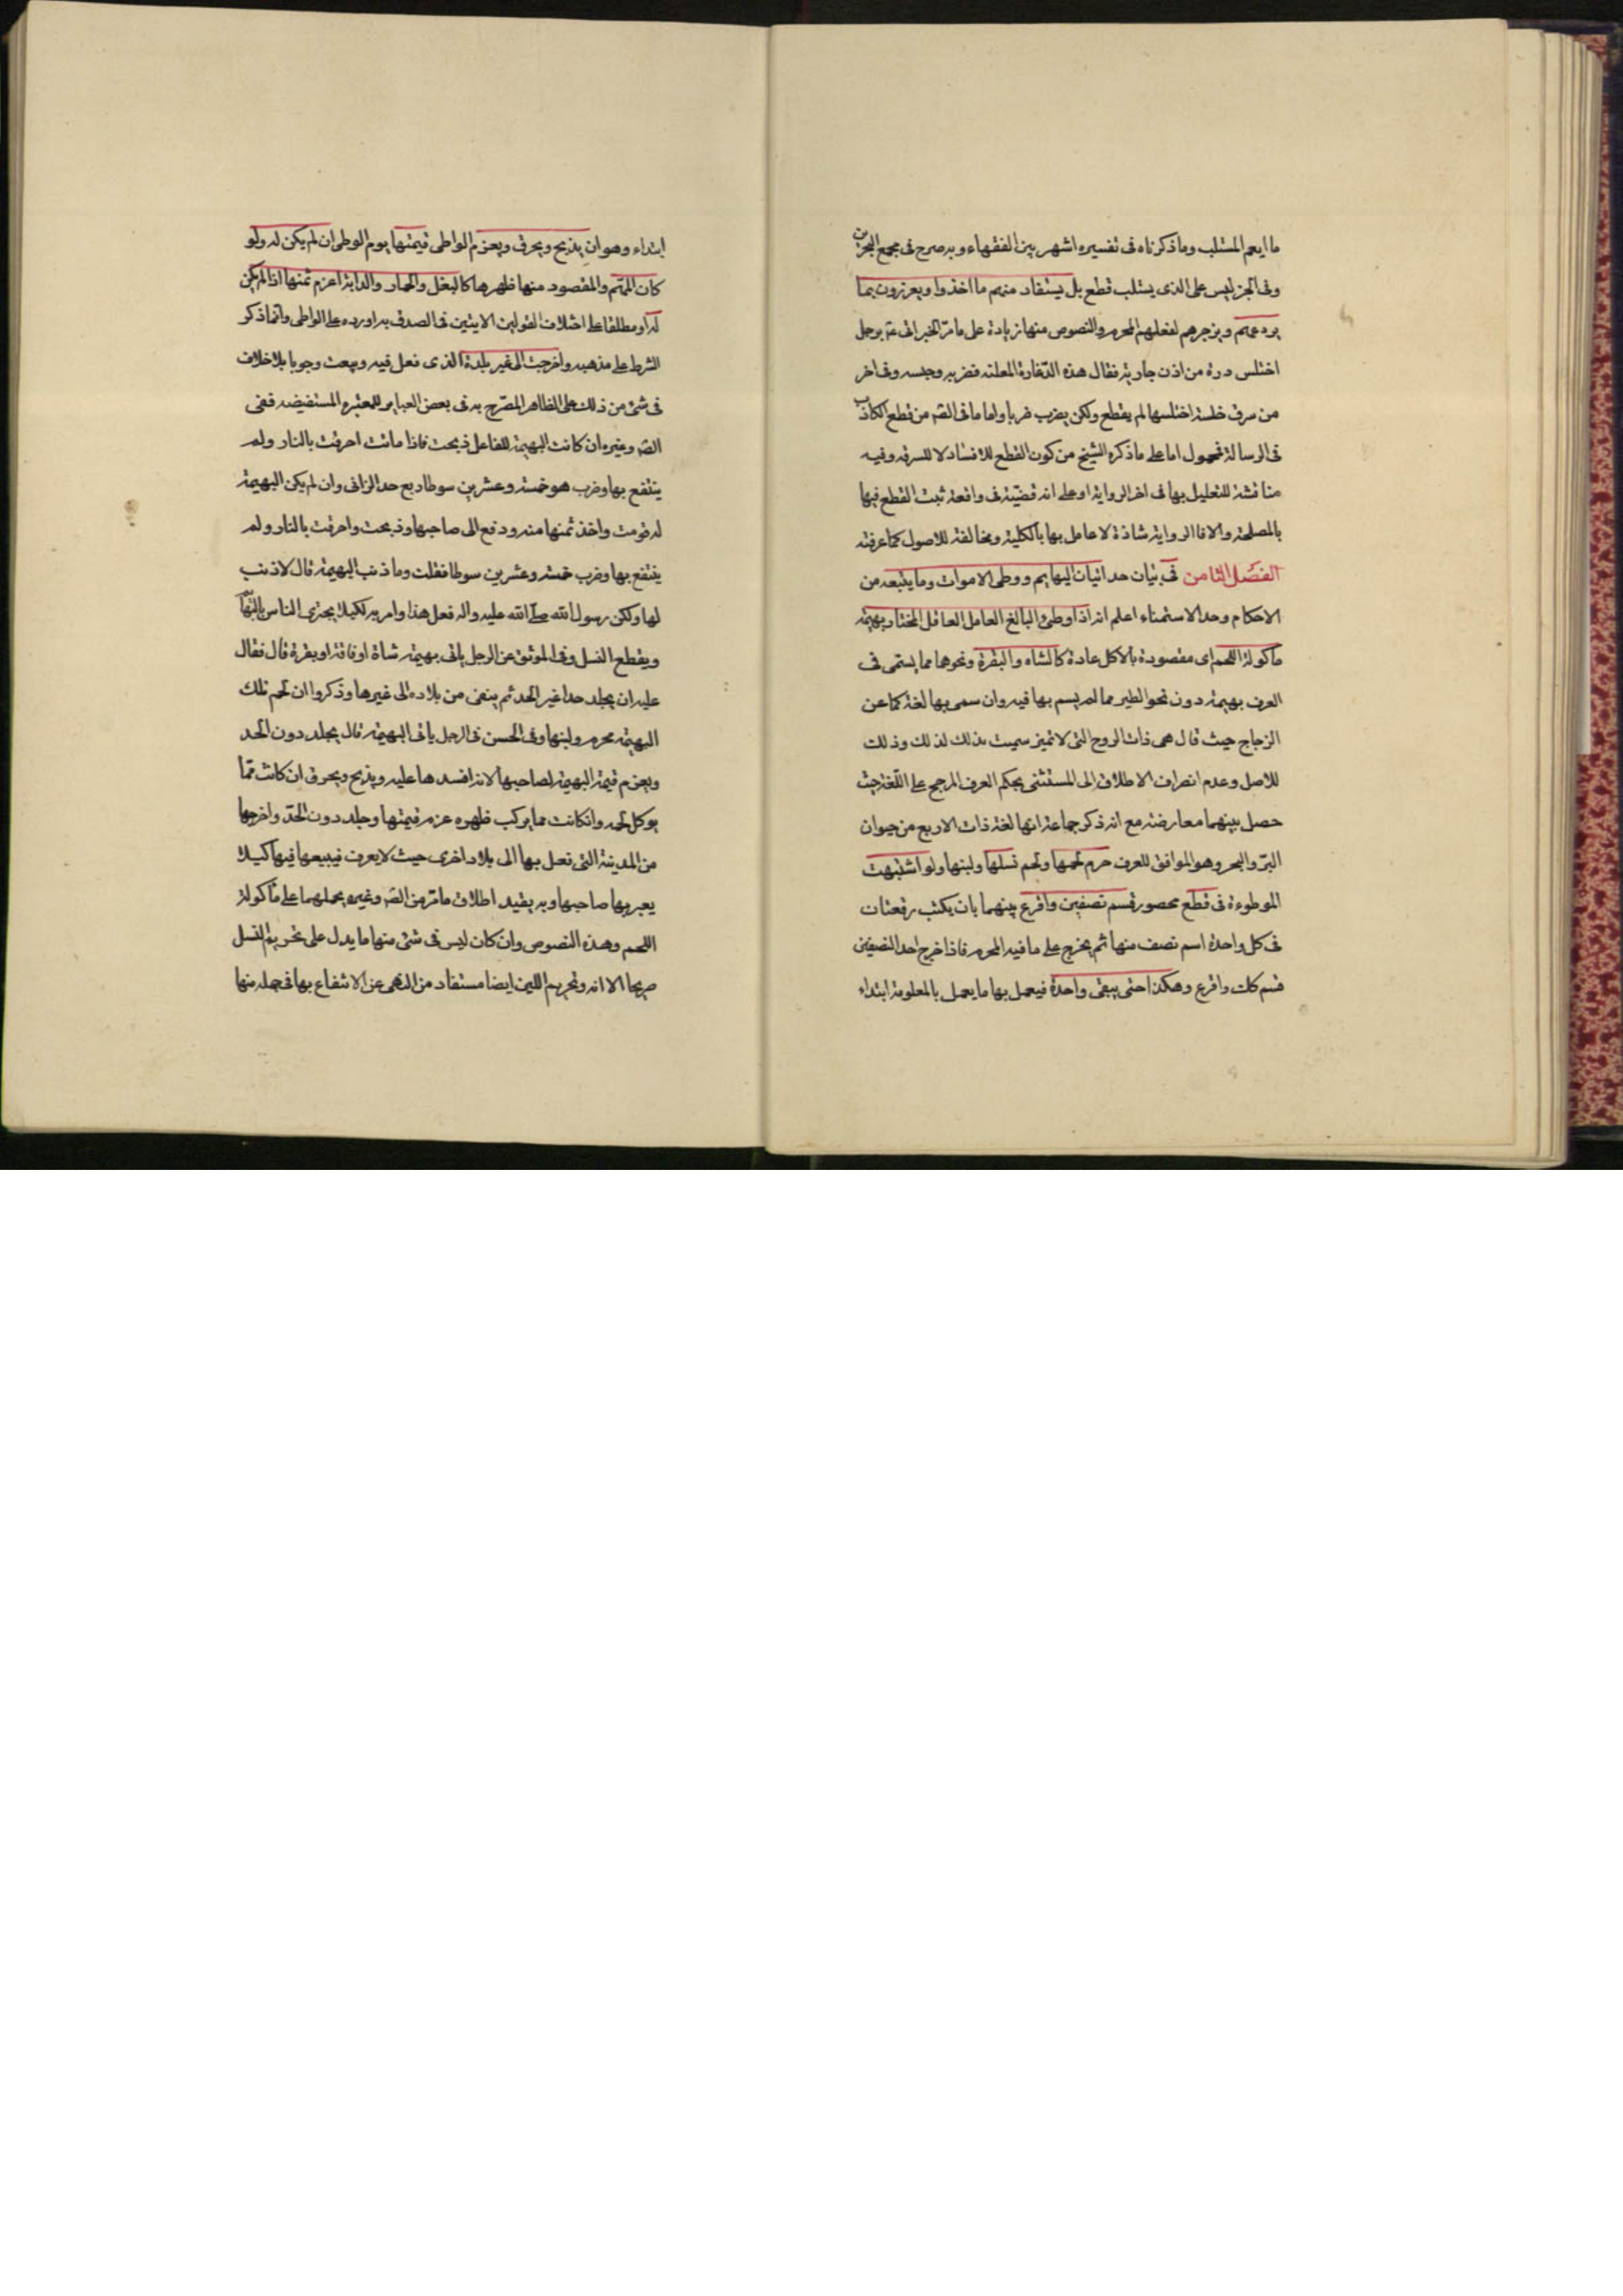 ما ايعم المستلب وما ذكرناه فى تفسيره اشهر بين الفقهاء وبه صرح فى مجمع البحرين
وفى الخبر ليس على الذى يستلب قطع بل يستفاد منهم ما اخذوا ويعزرون بما
يردعهم ويزجرهم لفعلهم المحرم والنصوص منها زيادة على ما مر الخبر اتى برجل
اختلس درة من اذن جارية فقال هذه الدغارة المعلنة فضربه وحبسه وفى اخر
من سرق خلسة اختلسها لم يقطع ولكن يضرب ضربا واما ما فى الص من قطع الكاذب
فى الرسالة فمحمول اما على ما ذكره الشيخ من كون القطع للافساد لا للسرقه وفيه
مناقشة للتعليل بها فى اخر الرواية او على انه قضية فى واقعة ثبت القطع فيها
بالمصلحة والا فالرواية شاذة لا عامل بها بالكلية ومخالفة للاصول كما عرفته
الفصل الثامن فى بيان حد اتيان البهايم ووطى الاموات وما يتبعه من
الاحكام وحد الاستمناء اعلم انه اذا وطئ البالغ العامل العاقل المختار بهيمة
ماكولة اللحم اى مقصودة بالاكل عادة كالشاه والبقرة ونحوها مما يسمى فى
العرف بهيمة دون نحو الطير مما لم يسم بها فيه وان سمى بها لغة كما عن
الزجاج حيث قال هى ذات الروح التى لا تميز سميت بذلك لذلك وذلك
للاصل وعدم انصراف الاطلاق الى المستثنى بحكم العرف المرجح على اللغة حيث
حصل بينهما معارضة مع انه ذكر جماعة انها لغة ذات الاربع من حيوان
البر والبحر وهو الموافق للعرف حرم لحمها ولحم نسلها ولبنها ولو اشتبهت
الموطوءة فى قطع محصور قسم نصفين واقرع بينهما بان يكتب رقعتان
فى كل واحدة اسم نصف منها ثم يخرج على ما فيه المحرم فاذا خرج احد النصفين
قسم كك واقرع وهكذا حتى يبقى واحدة فيعمل بها ما يعمل بالمعلومة ابتداء
ابتداء وهو ان يذبح ويحرق ويغرم الواطى قيمتها يوم الوطى ان لم يكن له ولو
كان المهم والمقصود منها ظهرها كالبغل والحمار والدابة اغرم ثمنها اذا لم يكن
له او مطلقا على اختلاف القولين الاتيين فى الصدق به او رده على الواطى وانما ذكر
الشرط على مذهبه واخرجت الى غير بلدة الذى فعل فيه وبيعت وجوبا بلا خلاف
فى شئ من ذلك على الظاهر المصرح به فى بعض العباير للمعتبره المستفيضه ففى
الص وغيره ان كانت البهيمة للفاعل ذبحت فاذا ماتت احرقت بالنار ولم
ينتفع بها وضرب هو خمسة وعشرين سوطا ربع حد الزانى وان لم يكن البهيمة
له قومت واخذ ثمنها منه ودفع الى صاحبها وذبحت واحرقت بالنار ولم
ينتفع بها وضرب خمسة وعشرين سوطا فقلت وما ذنب البهيمة قال لا ذنب
لها ولكن رسول الله صلى الله عليه واله فعل هذا وامر به لكيلا يجترى الناس بالبهايم
ويقطع النسل وفى الموثق عن الرجل ياتى بهيمة شاة او ناقة او بقرة قال فقال
عليه ان يجلد حدا غير الحد ثم ينفى من بلاده الى غيرها وذكروا ان لحم تلك
البهيمة محرم ولبنها وفى الحسن فى الرجل ياتى البهيمة قال يجلد دون الحد
ويغرم قيمة البهيمة لصاحبها لانه افسدها عليه ويذبح ويحرق ان كانت مما
يوكل لحمه وان كانت مما يركب ظهره غرم قيمتها وجلد دون الحد واخرجها
من المدينة التى فعل بها الى بلاد اخرى حيث لا يعرف فيبيعها فيها كيلا
يعير بها صاحبها وبه يقيد اطلاق ما مر من الص وغيره بحملهما على ماكولة
اللحم وهذه النصوص وان كان ليس فى شئ منها ما يدل على تحريم النسل
صريحا الا انه وتحريم اللبن ايضا مستفاد من النهى عن الانتفاع بها فى جملة منها